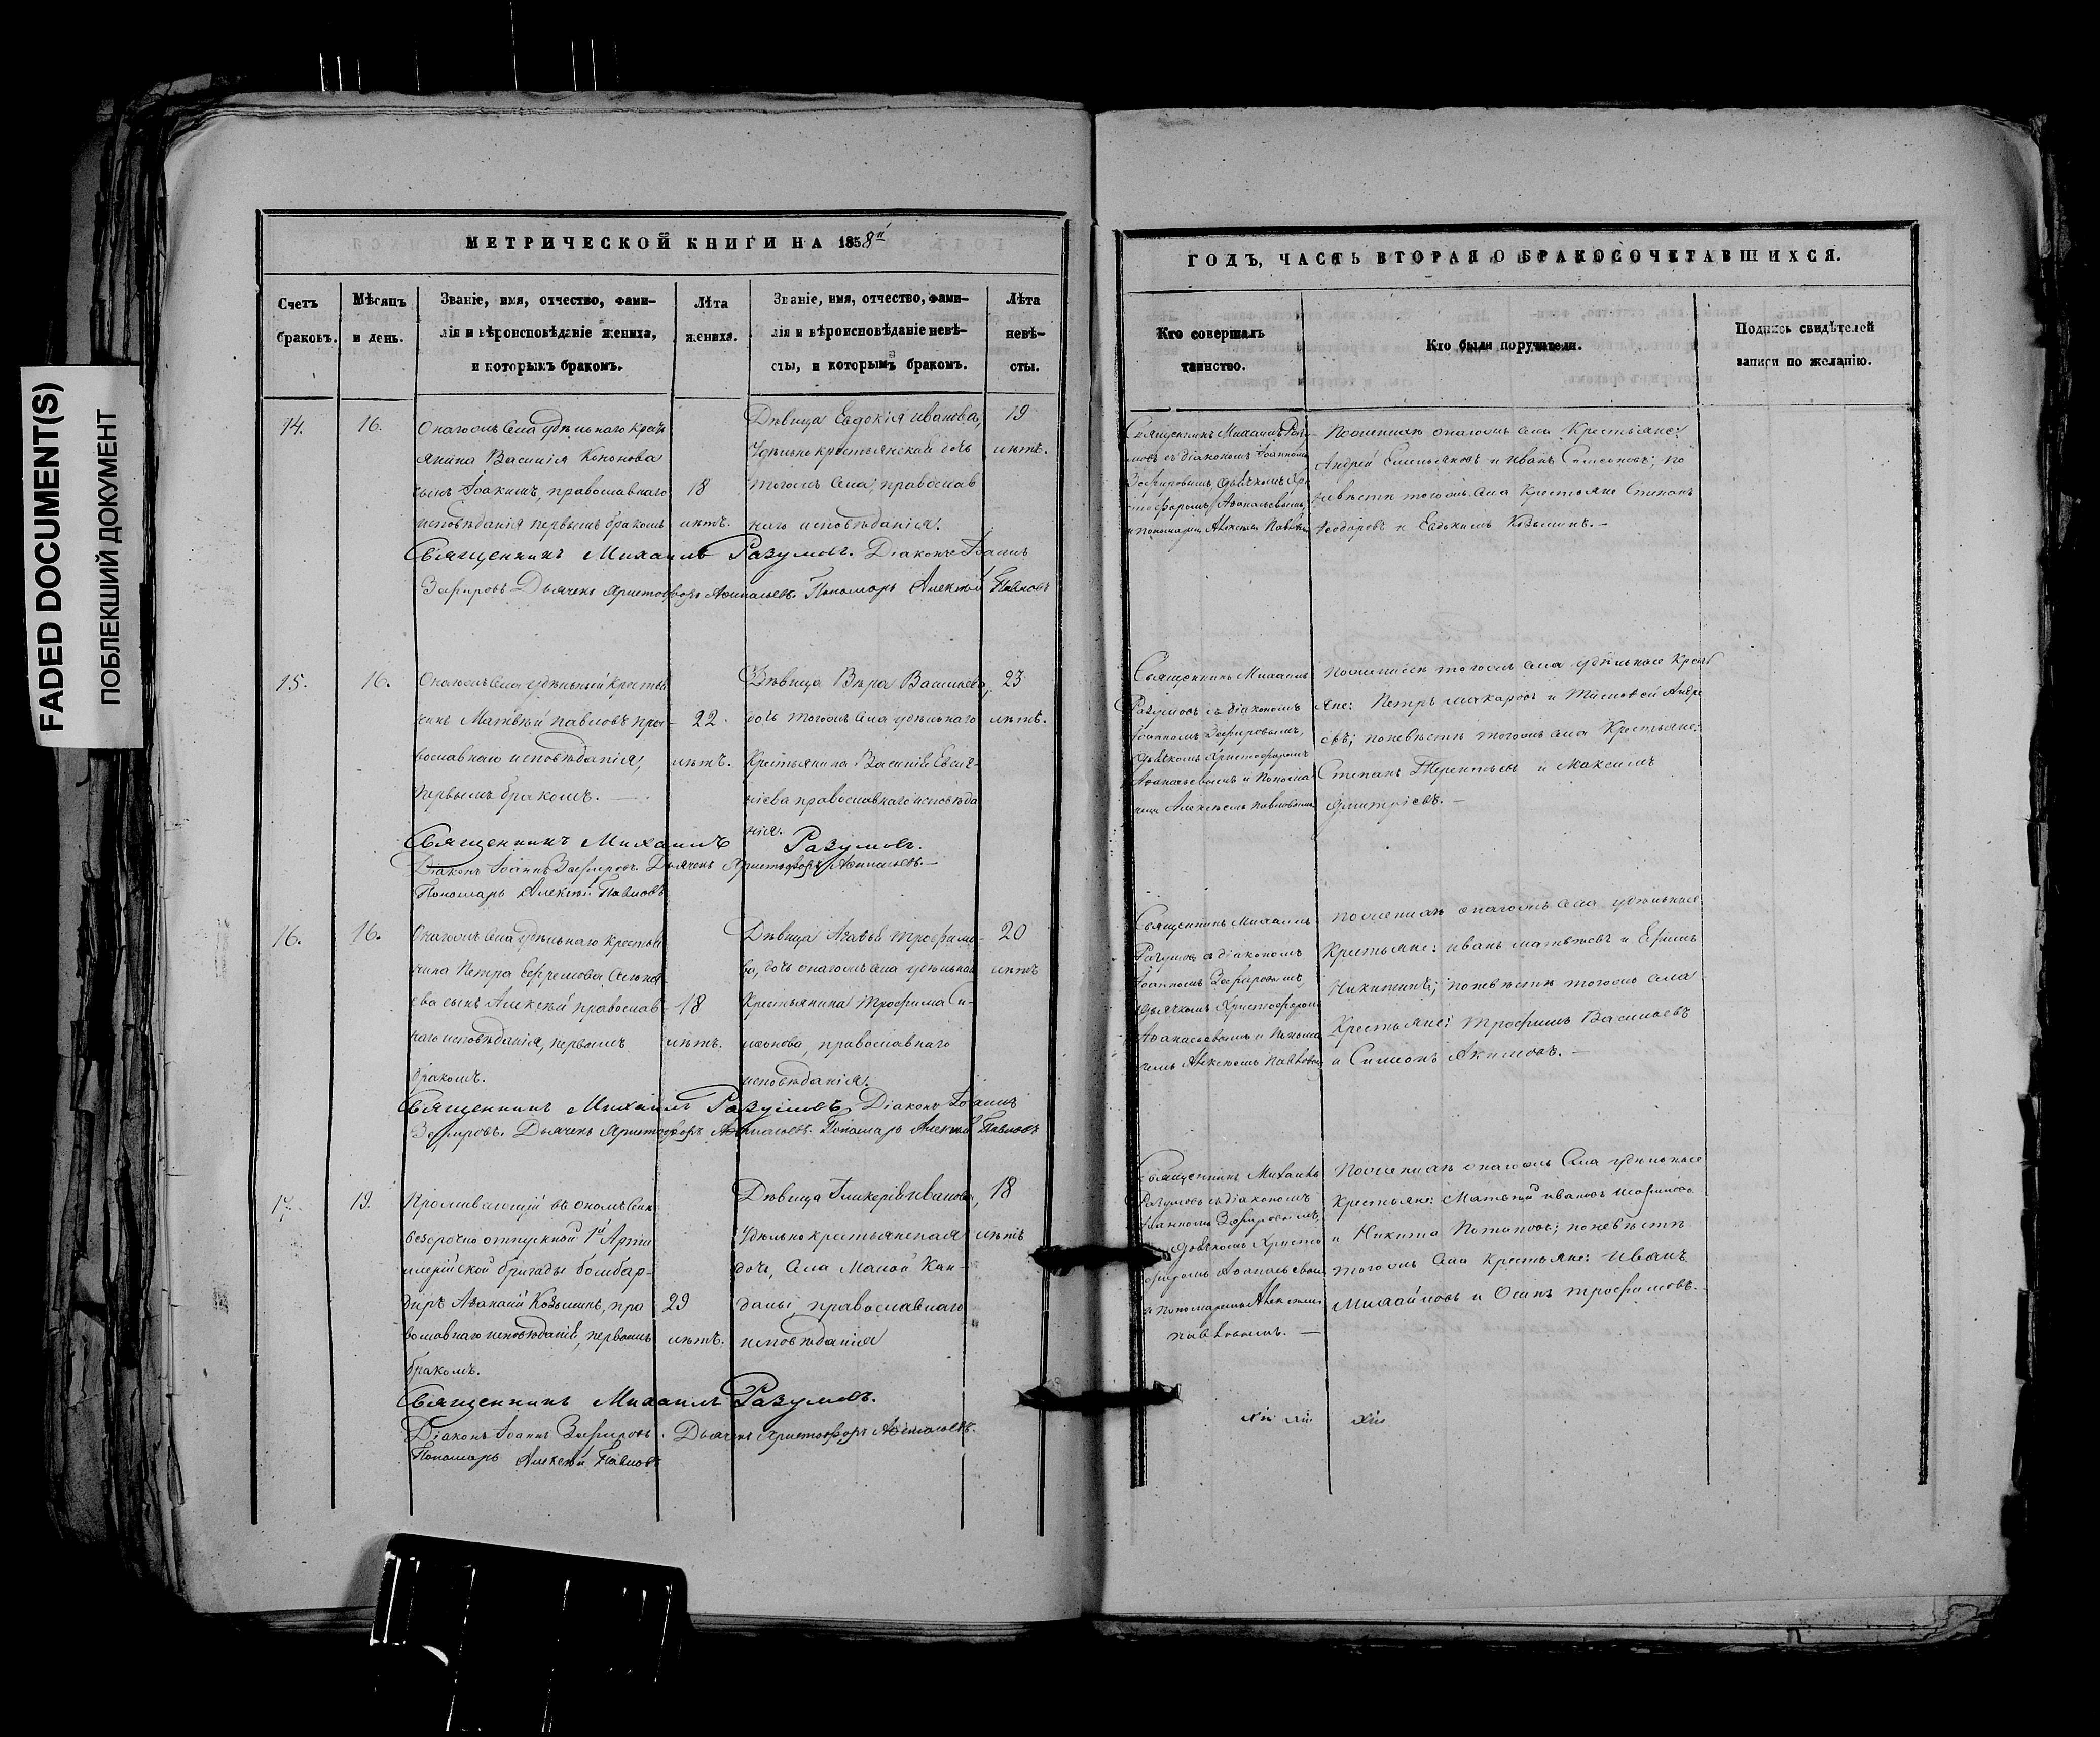 FADED DOCUMENT(S)
ПОБЛЕКШИЙ ДОКУМЕНТ
МЕТРИЧЕСКОЙ КНИГИ НА 1858й
Счетъ браковъ.
Мѣсяцъ и день.
Званіе, имя, отчество, фами-
лія и вѣроисповѣданіе жениха,
и которымъ бракомъ.
Лѣта жениха.
Званіе, имя, отчество, фами-
лія и вѣроисповѣданіе невѣ-
сты, и которымъ бракомъ.
Лѣта невѣ-
сты.
14.
16.
Онагожъ села удѣльнаго крест
янина Василія Кононова
сынъ Іоакимъ, православнаго
исповѣданія первымъ бракомъ
18
лѣтъ.
Дѣвица Евдокія Иванова,
Удѣльно крестьянская дочь
тогожъ села, православ
наго исповѣданія.
19
лѣтъ.
Священникъ Михаилъ Разумовъ. Діаконъ Іоаннъ
Зефировъ Дьячекъ Христофоръ Аѳанасьевъ. Пономарь Алексѣй Павловъ
15.
16.
Онагожъ села удѣльный крестья
нинъ Матвѣй Павловъ пра-
вославнаго исповѣданія,
первымъ бракомъ. —
22.
лѣтъ.
Дѣвица Вѣра Васильева,
дочь тогожъ села удѣльнаго
Крестьянина Василія Евсиг-
нѣева православнаго исповѣда
нія.
23
лѣтъ.
Священникъ Михаилъ Разумовъ.
Діаконъ Іоаннъ Зефировъ. Дьячекъ Христофоръ Аѳанасьевъ. —
Пономарь Алексѣй Павловъ
16.
16.
Онагожъ села удѣльнаго крестья
нина Петра Ефремова
сынъ Алексѣй православ-
наго исповѣданія, первымъ
бракомъ.
18
лѣтъ.
Дѣвица Агаѳья Трофимо-
ва, дочь онагожъ села удѣльнаго
Крестьянина Трофима Си-
меонова, православнаго
исповѣданія.
20
лѣтъ
Священникъ Михаилъ Разумовъ, Діаконъ Іоаннъ
Зефировъ. Дьячекъ Христофоръ Аѳанасьевъ. Пономарь Алексѣй Павловъ
17.
19.
Проживающій въ ономъ селѣ
безсрочно отпускной 1й Арти
лерійской бригады бомбар-
диръ Аѳанасій Козьминъ, пра
вославнаго исповѣданія, первымъ
бракомъ.
29
лѣтъ.
Дѣвица Гликерія Иванова,
Удѣльно крестьянская
дочь, села Малой Кан-
далы православнаго
исповѣданія
18
лѣтъ
Священникъ Михаилъ Разумовъ.
Діаконъ Іоаннъ Зефировъ. Дьячекъ Христофоръ Аѳанасьевъ.
Пономарь Алексѣй Павловъ
ГОДЪ, ЧАСТЬ ВТОРАЯ О БРАКОСОЧЕТАВШИХСЯ.
Кто совершалъ
таинство.
Кто были поручители.
Подпись свидѣтелей
записи по желанію.
Священникъ Михаилъ Разу-
мовъ съ діакономъ Іоанномъ
Зефировымъ, дьячкомъ Хри
стофоромъ Аѳанасьевымъ,
и пономаремъ Алексѣемъ Павловы
По женихѣ онагожъ села Крестьяне:
Андрей Емельяновъ и Иванъ Симеоновъ; по
невѣстѣ тогожъ села Крестьяне Степанъ
Ѳеодоровъ и Евдокимъ Козьминъ. —
Священникъ Михаилъ
Разумовъ съ діакономъ
Іоанномъ Зефировымъ,
дьячкомъ Христофоромъ
Аѳанасьевымъ и Понома
ремъ Алексѣемъ Павловымъ
По женихѣ тогожъ села удѣльные Крестья
яне: Петръ Макаровъ и Тимоѳей Андре
евъ; по невѣстѣ тогожъ села Крестьяне:
Степанъ Терентьевъ и Максимъ
Дмитріевъ. —
Священникъ Михаилъ
Разумовъ съ діакономъ
Іоанномъ Зефировымъ,
дьячкомъ Христофоромъ
Аѳанасьевымъ и Понома
ремъ Алексѣемъ Павловым
По женихѣ онагожъ села удѣльные
Крестьяне: Иванъ Матвѣевъ и Ефимъ
Никитинъ; по невѣстѣ тогожъ села
Крестьяне: Трофимъ Васильевъ
и Симеонъ Акимовъ. —
Священникъ Михаилъ
Разумовъ съ діакономъ
Іоанномъ Зефировымъ,
дьячкомъ Христо
форомъ Аѳанасьевым
и пономаремъ Алексѣемъ
Павловымъ. —
По женихѣ онагожъ села удѣльные
Крестьяне: Матвѣй Ивановъ
и Никита Потаповъ; по невѣстѣ
тогожъ села Крестьяне: Иванъ
Михайловъ и Осипъ Трофимовъ. —